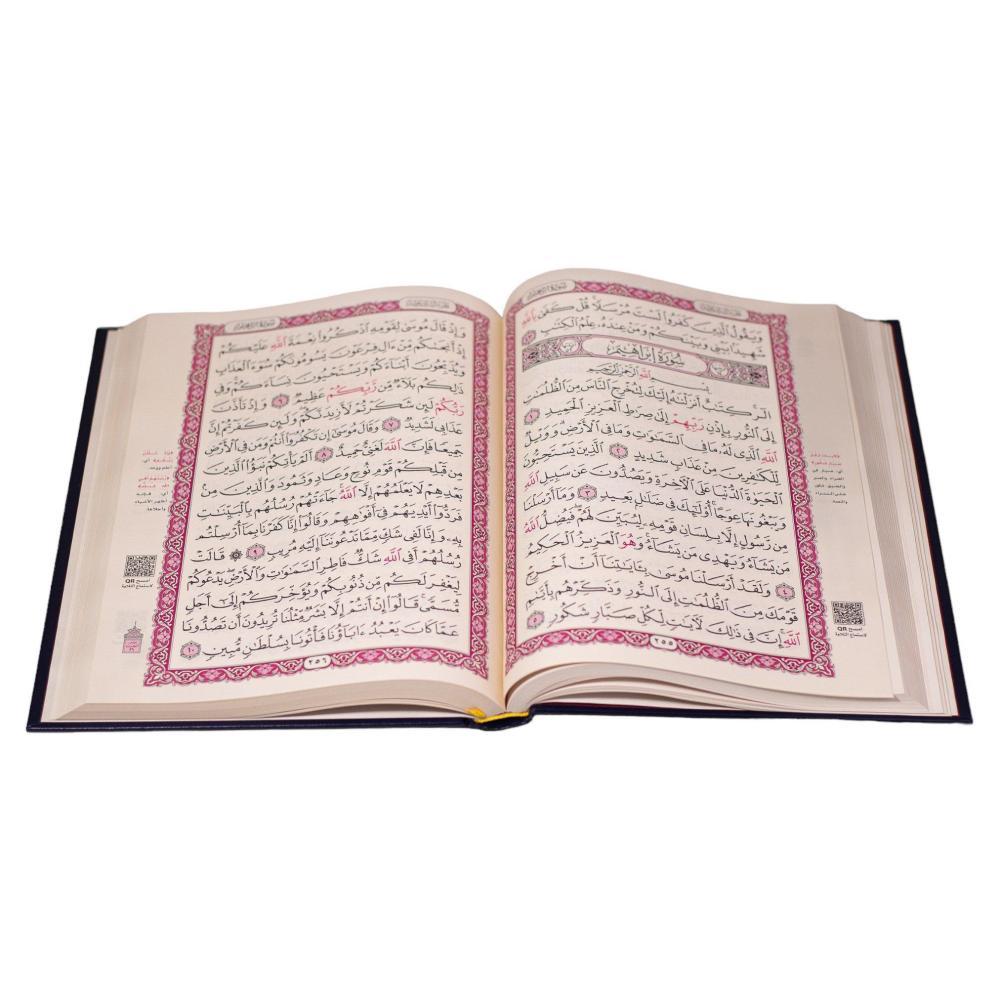 سورة إبراهيم
وَيَقُولُ الَّذِينَ كَفَرُوا لَسْتَ مُرْسَلًا قُلْ كَفَىٰ بِاللَّهِ
شَهِيدًا بَيْنِي وَبَيْنَكُمْ وَمَنْ عِندَهُ عِلْمُ الْكِتَٰبِ ٤٣
سُورَةُ إِبْرَاهِيمَ
بِسْمِ اللَّهِ الرَّحْمَٰنِ الرَّحِيمِ
الٓر كِتَٰبٌ أَنزَلْنَٰهُ إِلَيْكَ لِتُخْرِجَ النَّاسَ مِنَ الظُّلُمَٰتِ
إِلَى النُّورِ بِإِذْنِ رَبِّهِمْ إِلَىٰ صِرَٰطِ الْعَزِيزِ الْحَمِيدِ ١
اللَّهِ الَّذِي لَهُ مَا فِي السَّمَٰوَٰتِ وَمَا فِي الْأَرْضِ وَوَيْلٌ
لِّلْكَٰفِرِينَ مِنْ عَذَابٍ شَدِيدٍ ٢ الَّذِينَ يَسْتَحِبُّونَ
الْحَيَوٰةَ الدُّنْيَا عَلَى الْآخِرَةِ وَيَصُدُّونَ عَن سَبِيلِ اللَّهِ
وَيَبْغُونَهَا عِوَجًا أُولَٰئِكَ فِي ضَلَٰلٍ بَعِيدٍ ٣ وَمَا أَرْسَلْنَا
مِن رَّسُولٍ إِلَّا بِلِسَانِ قَوْمِهِ لِيُبَيِّنَ لَهُمْ فَيُضِلُّ اللَّهُ
مَن يَشَاءُ وَيَهْدِي مَن يَشَاءُ وَهُوَ الْعَزِيزُ الْحَكِيمُ
٤ وَلَقَدْ أَرْسَلْنَا مُوسَىٰ بِـَٔايَٰتِنَا أَنْ أَخْرِجْ
قَوْمَكَ مِنَ الظُّلُمَٰتِ إِلَى النُّورِ وَذَكِّرْهُم بِأَيَّىٰمِ
اللَّهِ إِنَّ فِي ذَٰلِكَ لَآيَٰتٍ لِّكُلِّ صَبَّارٍ شَكُورٍ ٥
٢٥٥
امسح QR
لاستماع التلاوة
سورة إبراهيم
وَإِذْ قَالَ مُوسَىٰ لِقَوْمِهِ اذْكُرُوا نِعْمَةَ اللَّهِ عَلَيْكُمْ
إِذْ أَنجَىٰكُم مِّنْ ءَالِ فِرْعَوْنَ يَسُومُونَكُمْ سُوءَ الْعَذَابِ
وَيُذَبِّحُونَ أَبْنَاءَكُمْ وَيَسْتَحْيُونَ نِسَاءَكُمْ وَفِي
ذَٰلِكُم بَلَاءٌ مِّن رَّبِّكُمْ عَظِيمٌ ٦ وَإِذْ تَأَذَّنَ
رَبُّكُمْ لَئِن شَكَرْتُمْ لَأَزِيدَنَّكُمْ وَلَئِن كَفَرْتُمْ إِنَّ
عَذَابِي لَشَدِيدٌ ٧ وَقَالَ مُوسَىٰ إِن تَكْفُرُوا أَنتُمْ وَمَن فِي الْأَرْضِ
جَمِيعًا فَإِنَّ اللَّهَ لَغَنِيٌّ حَمِيدٌ ٨ أَلَمْ يَأْتِكُمْ نَبَؤُا الَّذِينَ
مِن قَبْلِكُمْ قَوْمِ نُوحٍ وَعَادٍ وَثَمُودَ وَالَّذِينَ مِن
بَعْدِهِمْ لَا يَعْلَمُهُمْ إِلَّا اللَّهُ جَاءَتْهُمْ رُسُلُهُم بِالْبَيِّنَٰتِ
فَرَدُّوا أَيْدِيَهُمْ فِي أَفْوَٰهِهِمْ وَقَالُوا إِنَّا كَفَرْنَا بِمَا أُرْسِلْتُم
بِهِ وَإِنَّا لَفِي شَكٍّ مِّمَّا تَدْعُونَنَا إِلَيْهِ مُرِيبٍ ٩ قَالَتْ
رُسُلُهُمْ أَفِي اللَّهِ شَكٌّ فَاطِرِ السَّمَٰوَٰتِ وَالْأَرْضِ يَدْعُوكُمْ
لِيَغْفِرَ لَكُم مِّن ذُنُوبِكُمْ وَيُؤَخِّرَكُمْ إِلَىٰ أَجَلٍ
مُّسَمًّى قَالُوا إِنْ أَنتُمْ إِلَّا بَشَرٌ مِّثْلُنَا تُرِيدُونَ أَن تَصُدُّونَا
عَمَّا كَانَ يَعْبُدُ ءَابَاؤُنَا فَأْتُونَا بِسُلْطَٰنٍ مُّبِينٍ ١٠
٢٥٦
امسح QR
لاستماع التلاوة